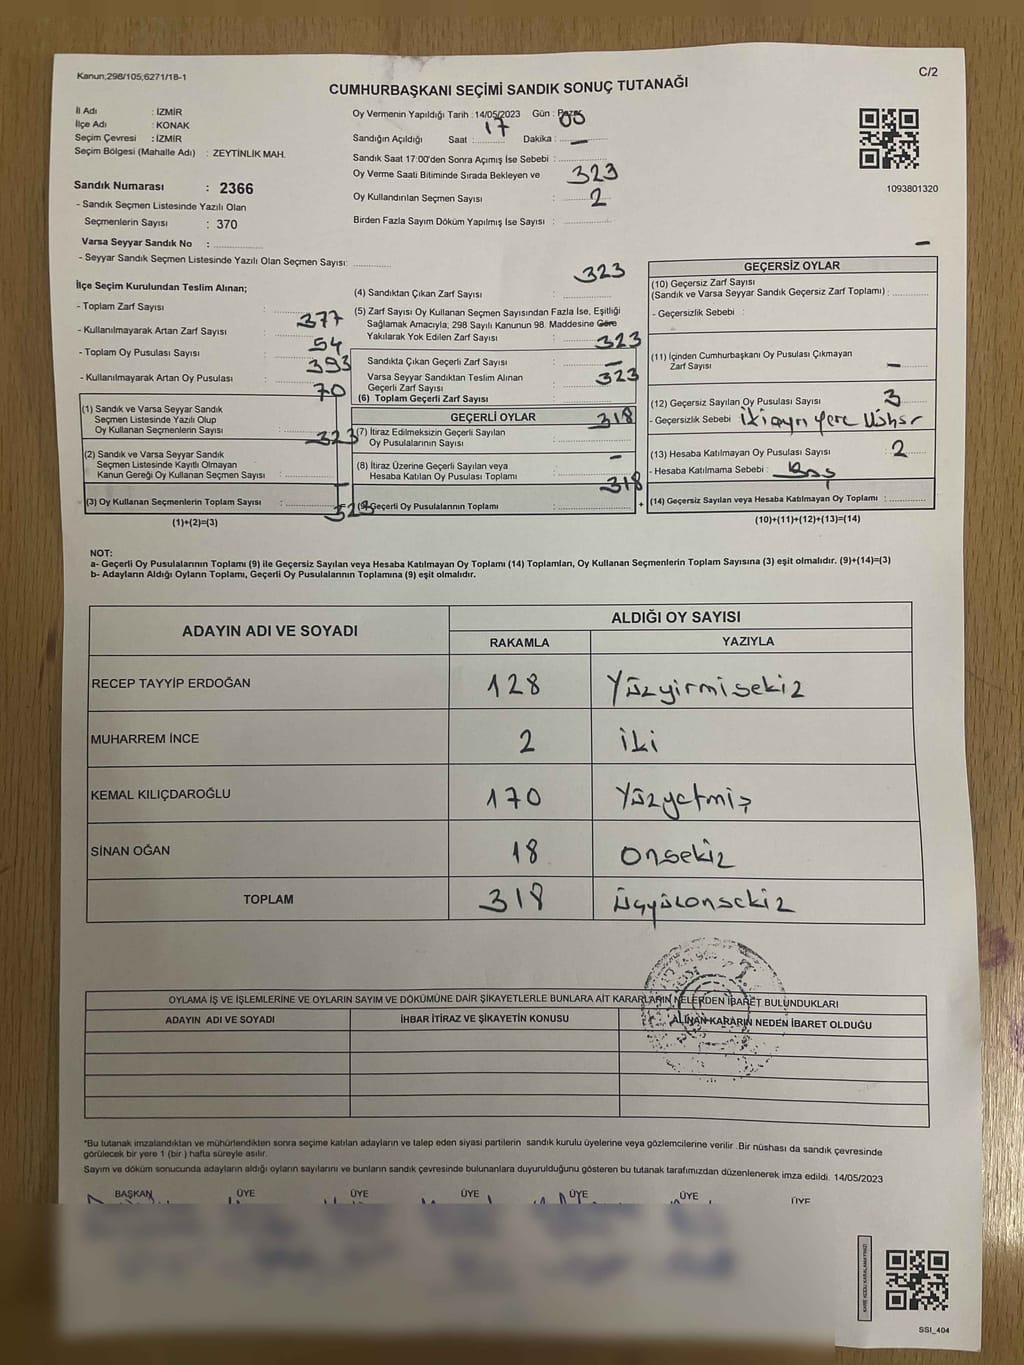 Kanun;298/105;6271/18-1
C/2
CUMHURBAŞKANI SEÇİMİ SANDIK SONUÇ TUTANAĞI
İl Adı : İZMİR
İlçe Adı : KONAK
Seçim Çevresi : İZMİR
Seçim Bölgesi (Mahalle Adı) : ZEYTİNLİK MAH.
Sandık Numarası : 2366
- Sandık Seçmen Listesinde Yazılı Olan
Seçmenlerin Sayısı : 370
Varsa Seyyar Sandık No :
- Seyyar Sandık Seçmen Listesinde Yazılı Olan Seçmen Sayısı:
Oy Vermenin Yapıldığı Tarih : 14/05/2023 Gün : Pazar
Sandığın Açıldığı Saat : 17 Dakika : 00
Sandık Saat 17:00'den Sonra Açımış İse Sebebi : —
Oy Verme Saati Bitiminde Sırada Bekleyen ve
Oy Kullandırılan Seçmen Sayısı : 323
Birden Fazla Sayım Döküm Yapılmış İse Sayısı : 2
1093801320
İlçe Seçim Kurulundan Teslim Alınan;
- Toplam Zarf Sayısı : 377
- Kullanılmayarak Artan Zarf Sayısı : 54
- Toplam Oy Pusulası Sayısı : 393
- Kullanılmayarak Artan Oy Pusulası : 70
(1) Sandık ve Varsa Seyyar Sandık
Seçmen Listesinde Yazılı Olup
Oy Kullanan Seçmenlerin Sayısı : 323
(2) Sandık ve Varsa Seyyar Sandık
Seçmen Listesinde Kayıtlı Olmayan
Kanun Gereği Oy Kullanan Seçmen Sayısı : —
(3) Oy Kullanan Seçmenlerin Toplam Sayısı : 323
(1)+(2)=(3)
(4) Sandıktan Çıkan Zarf Sayısı : 323
(5) Zarf Sayısı Oy Kullanan Seçmen Sayısından Fazla İse, Eşitliği
Sağlamak Amacıyla; 298 Sayılı Kanunun 98. Maddesine Göre
Yakılarak Yok Edilen Zarf Sayısı :
Sandıkta Çıkan Geçerli Zarf Sayısı : 323
Varsa Seyyar Sandıktan Teslim Alınan
Geçerli Zarf Sayısı : —
(6) Toplam Geçerli Zarf Sayısı : 323
GEÇERLİ OYLAR
(7) İtiraz Edilmeksizin Geçerli Sayılan
Oy Pusulalarının Sayısı : 318
(8) İtiraz Üzerine Geçerli Sayılan veya
Hesaba Katılan Oy Pusulası Toplamı : —
(9) Geçerli Oy Pusulalarının Toplamı : 318
+
—
GEÇERSİZ OYLAR
(10) Geçersiz Zarf Sayısı
(Sandık ve Varsa Seyyar Sandık Geçersiz Zarf Toplamı) :
- Geçersizlik Sebebi :
(11) İçinden Cumhurbaşkanı Oy Pusulası Çıkmayan
Zarf Sayısı —
(12) Geçersiz Sayılan Oy Pusulası Sayısı : 3
- Geçersizlik Sebebi : iki ayrı yere
(13) Hesaba Katılmayan Oy Pusulası Sayısı : 2
- Hesaba Katılmama Sebebi : Boş
(14) Geçersiz Sayılan veya Hesaba Katılmayan Oy Toplamı :
(10)+(11)+(12)+(13)=(14)
NOT:
a- Geçerli Oy Pusulalarının Toplamı (9) ile Geçersiz Sayılan veya Hesaba Katılmayan Oy Toplamı (14) Toplamları, Oy Kullanan Seçmenlerin Toplam Sayısına (3) eşit olmalıdır. (9)+(14)=(3)
b- Adayların Aldığı Oyların Toplamı, Geçerli Oy Pusulalarının Toplamına (9) eşit olmalıdır.
ADAYIN ADI VE SOYADI
ALDIĞI OY SAYISI
RAKAMLA YAZIYLA
RECEP TAYYİP ERDOĞAN 128 Yüzyirmisekiz
MUHARREM İNCE 2 iki
KEMAL KILIÇDAROĞLU 170 Yüzyetmiş
SİNAN OĞAN 18 Onsekiz
TOPLAM 318 üçyüzonsekiz
OYLAMA İŞ VE İŞLEMLERİNE VE OYLARIN SAYIM VE DÖKÜMÜNE DAİR ŞİKAYETLERLE BUNLARA AİT KARARLARIN NELERDEN İBARET BULUNDUKLARI
ADAYIN ADI VE SOYADI İHBAR İTİRAZ VE ŞİKAYETİN KONUSU ALINAN KARARIN NEDEN İBARET OLDUĞU
*Bu tutanak imzalandıktan ve mühürlendikten sonra seçime katılan adayların ve talep eden siyasi partilerin sandık kurulu üyelerine veya gözlemcilerine verilir .Bir nüshası da sandık çevresinde
görülecek bir yere 1 (bir ) hafta süreyle asılır.
Sayım ve döküm sonucunda adayların aldığı oyların sayılarını ve bunların sandık çevresinde bulunanlara duyurulduğunu gösteren bu tutanak tarafımızdan düzenlenerek imza edildi. 14/05/2023
BAŞKAN ÜYE ÜYE ÜYE ÜYE ÜYE ÜYE
SSI_404